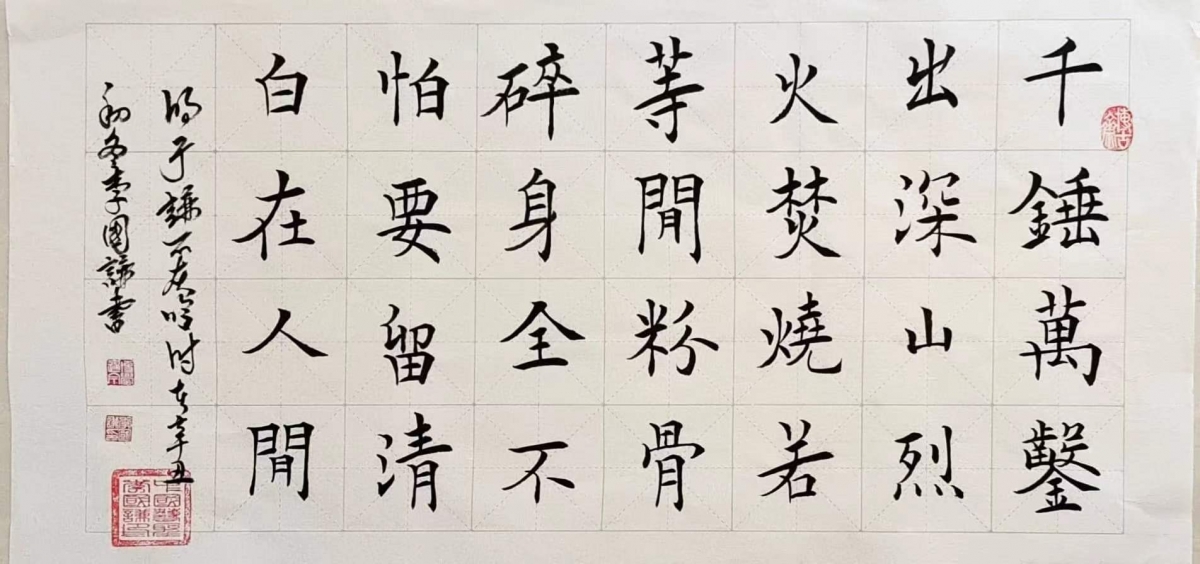 千錘萬鑿
出深山烈
火焚燒若
等閒粉骨
碎身全不
怕要留清
白在人閒
明于謙石灰吟时在辛丑
初冬李國謙書